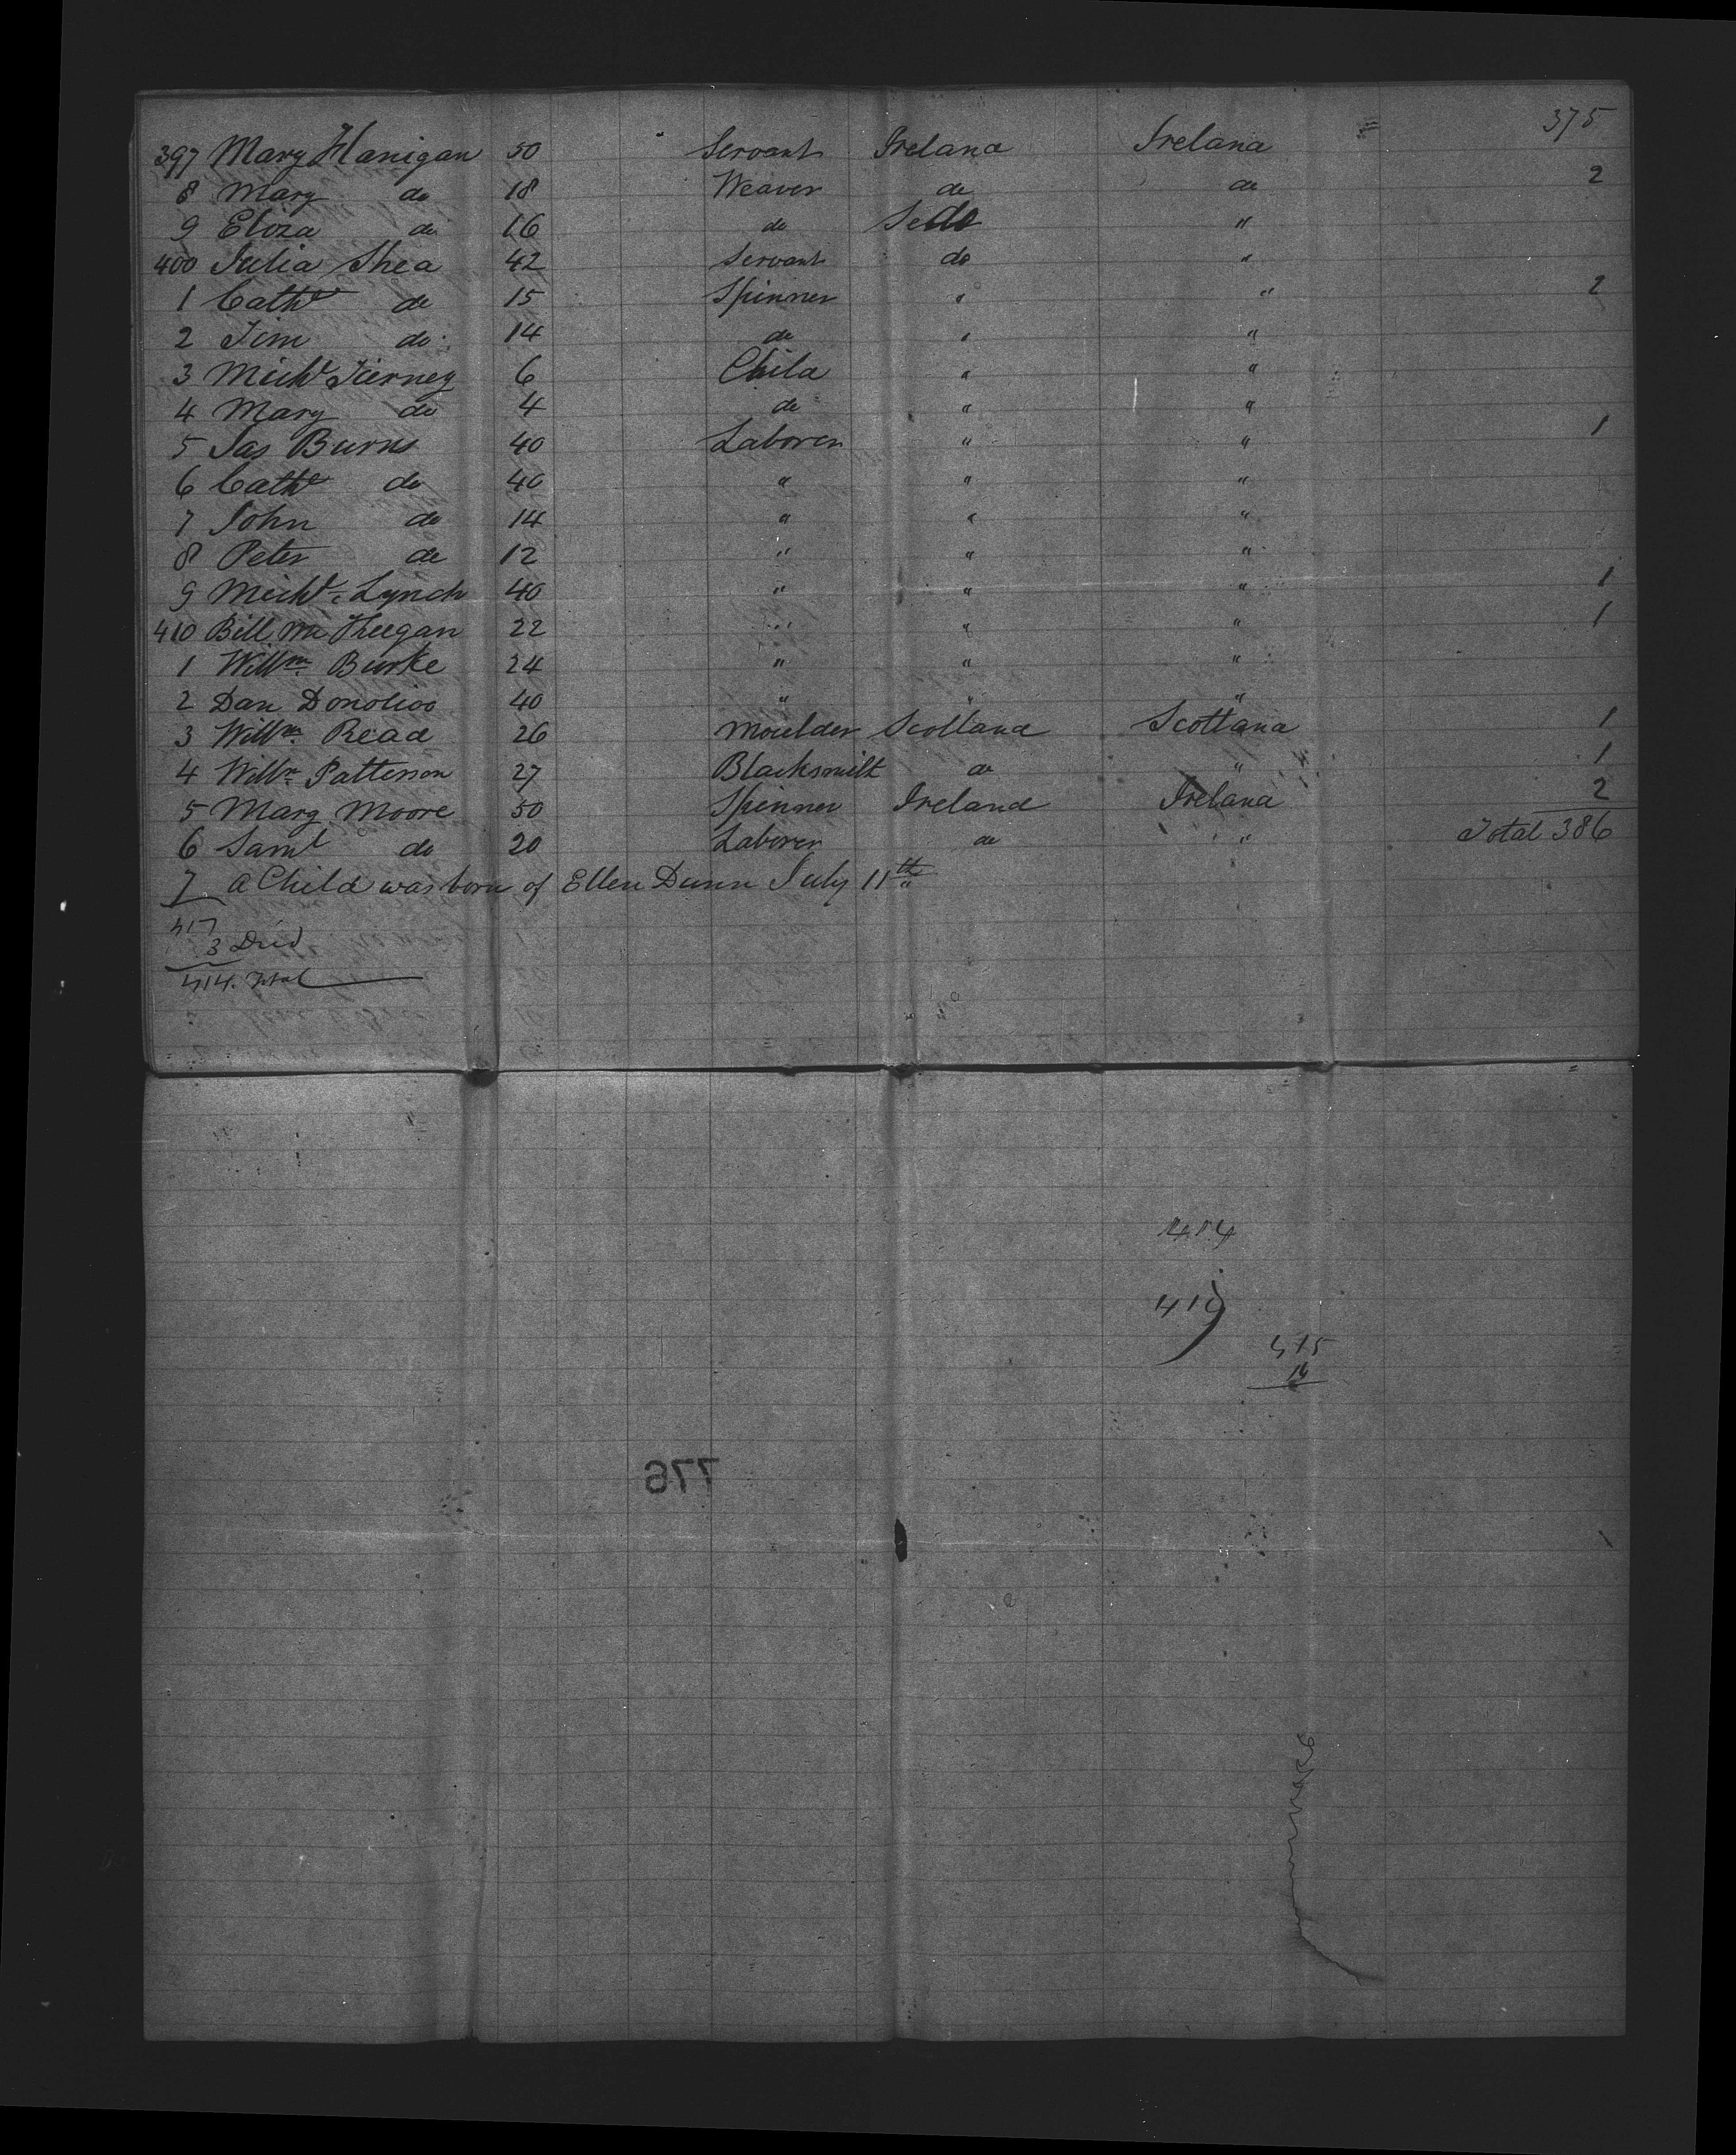 375
397 Mary Hanigan 50 Servant Ireland Ireland
8 Mary do 18 Weaver do do 2
9 Eliza do 16 do do "
400 Julia Shea 42 Servant do "
1 Cathe do 15 Spinner " " 2
2 Jim do 14 do " "
3 Michl Tierney 6 Child " "
4 Mary do 4 do " "
5 Jas Burns 40 Laborer " " 1
6 Cathe do 40 " " "
7 John do 14 " " "
8 Peter do 12 " " "
9 Michl Lynch 40 " " " 1
410 Bill Mc Keegan 22 " " " 1
1 Willm Burke 24 " " "
2 Dan 40 " " "
3 Willm Read 26 Moulder Scotland Scotland 1
4 Willm Patterson 27 Blacksmith do " 1
5 Marg Moore 50 Spinner Ireland Ireland 2
6 Saml do 20 Laborer do " Total 386
7 A Child was born of Ellen Dunn July 11th
417
3 Died
414. Total
414
415
776